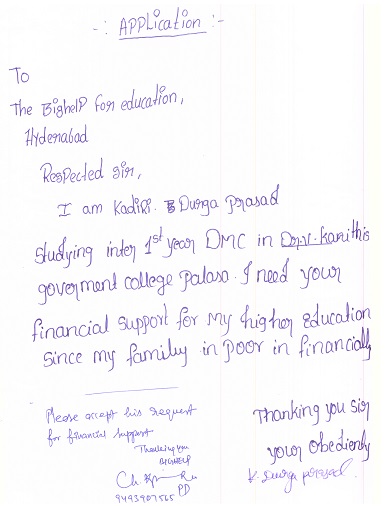 -: APPLication :-
To
The BigHelp for education,
Hyderabad
Respected sir,
I am Kadiri. Durga prasad
studying inter 1st year DMC in Dr.V.kanithis
goverment college Palasa. I need your
financial support for my higher Education
since my family in poor in financially
Thanking you sir
your obediently
K. Durga prasad.
Please accept his request
for financial support
Thanking you
BIGHELP
PD
9493907565